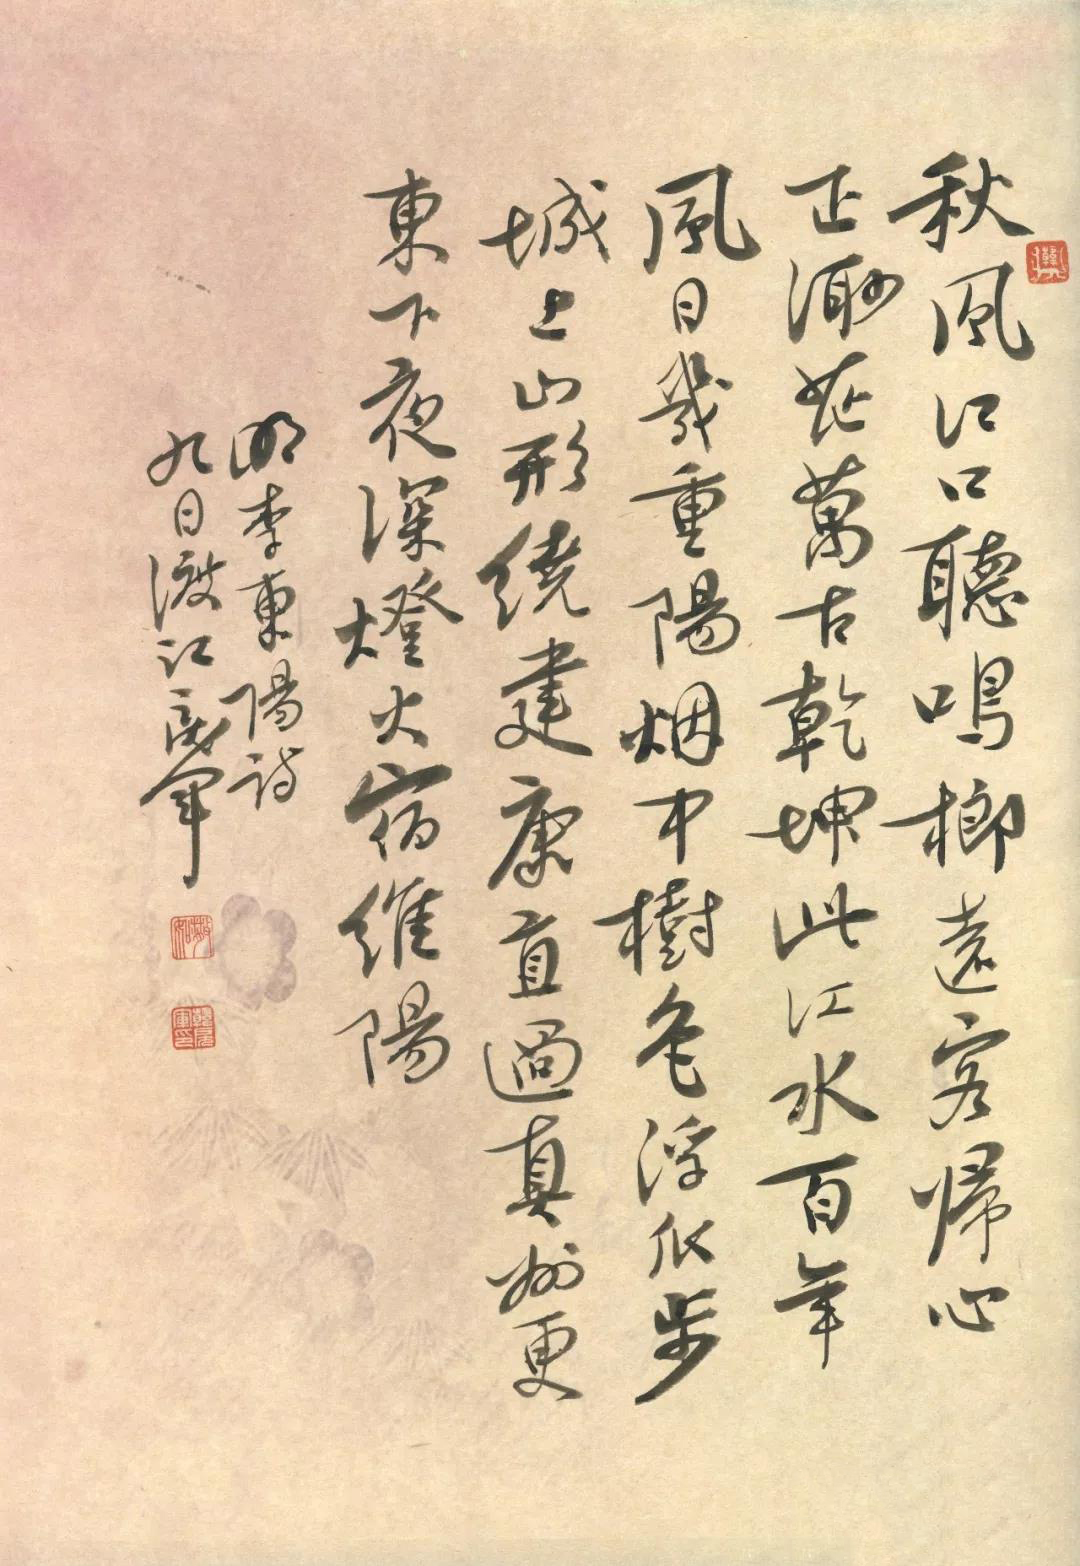 秋風江口聽鳴榔遠客帰心
正渺茫萬古乾坤此江水百年
風日幾重陽烟中樹色浮瓜步
城上山形繞建康直過真州更
東下夜深燈火宿維陽
明李東陽詩
九日渡江 軍